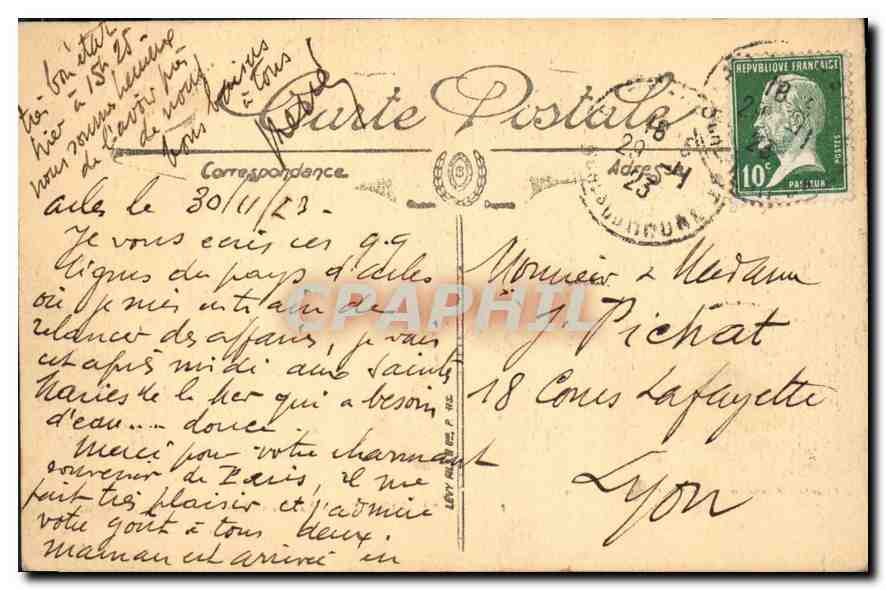 Carte Postale
Correspondance
Adresse
REPVBLIQVE FRANÇAISE
POSTES
10c
PASTEUR
18
23
Arles le 30/11/23-
Je vous écris ces q.q
lignes du pays d'Arles
où je suis en train de
relancer des affaires, je vais
cet après midi aux Saintes
Maries de la Mer qui a besoin
d'eau.... douce
Merci pour votre charmant
souvenir de Paris, il me
fait très plaisir et j'admire
votre goût à tous deux.
Maman est arrivée en
très bon état
hier à 15h 25
nous sommes heureux
de l'avoir près
de nous.
Bons baisers
à tous
Monsieur & Madame
J. Pichat
18 Cours Lafayette
Lyon
CPAPHIL